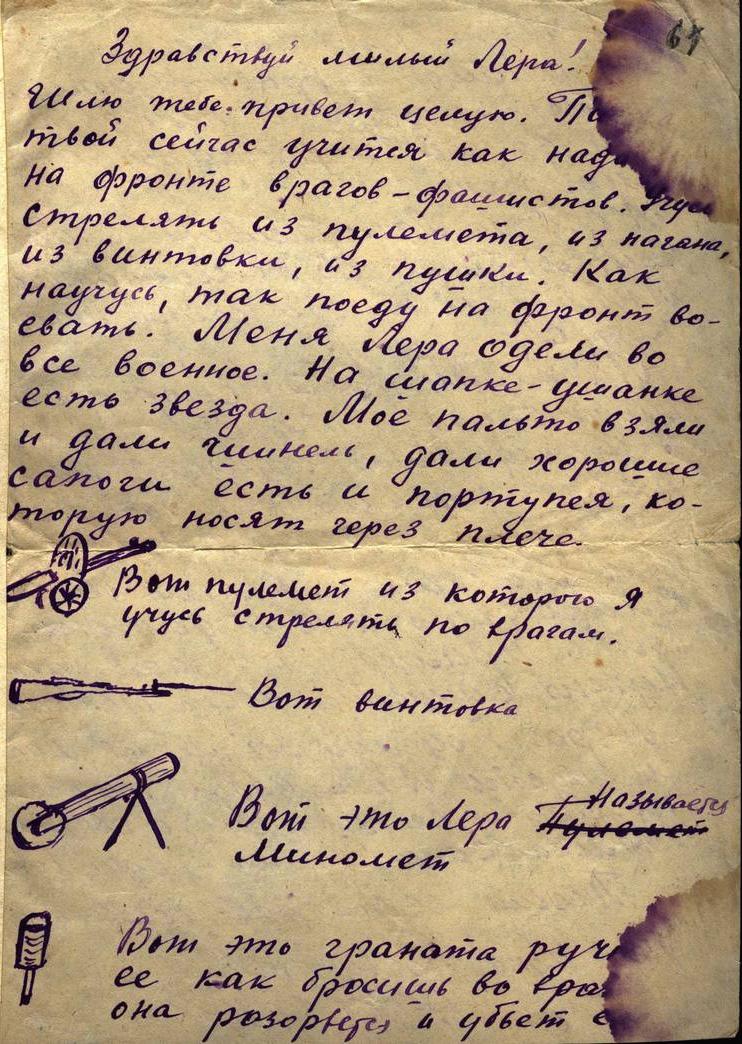 64
Здравствуй милый Лера!
Шлю тебе привет целую.
твой сейчас учится как
на фронте врагов-фашистов. Учусь
стрелять из пулемета, из нагана,
из винтовки, из пушки. Как
научусь, так поеду на фронт во-
евать. Меня Лера одели во
все военное. На шапке-ушанке
есть звезда. Моё пальто взяли
и дали шинель, дали хорошие
сапоги есть и портупея, ко-
торую носят через плече.
Вот пулемет из которого я
учусь стрелять по врагам.
Вот винтовка
Называется
Вот это Лера Пулемет
Миномет
Вот это граната
ее как бросишь во
она разорвется и убьет